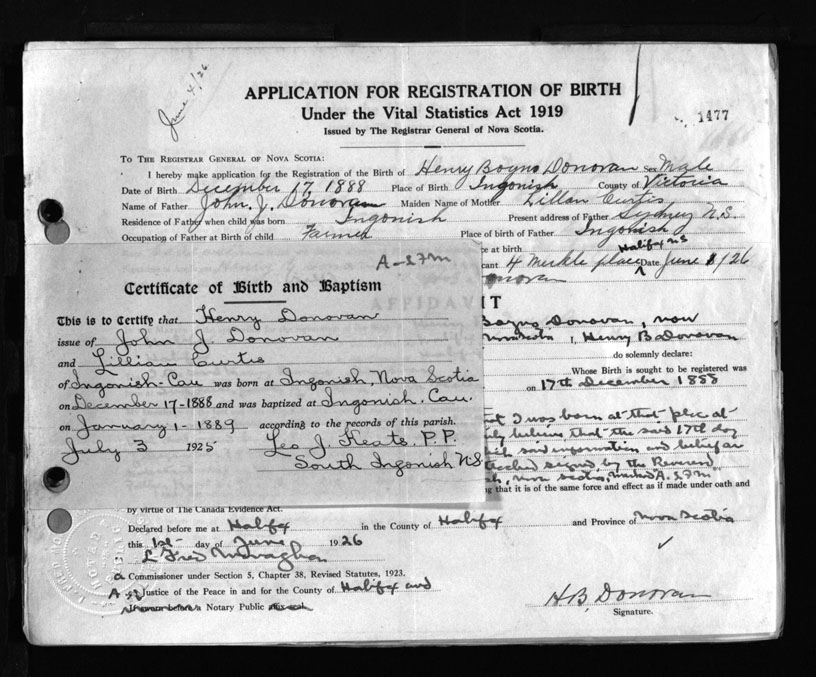 June 4/26
APPLICATION FOR REGISTRATION OF BIRTH
Under the Vital Statistics Act 1919
Issued by The Registrar General of Nova Scotia.
1477
TO THE REGISTRAR GENERAL OF NOVA SCOTIA:
I hereby make application for the Registration of the Birth of Henry Boyns Donovan Sex Male
Date of Birth December 17, 1888 Place of Birth Ingonish County of Victoria
Name of Father John. J. Donovan Maiden Name of Mother Lillan Curtis
Residence of Father when child was born Ingonish Present address of Father Sydney N.S.
Occupation of Father at Birth of child Farmer Place of birth of Father Ingonish
ce at birth
Halifax NS
cant 4 Merkle place Date June 1/26
onovan
A-LFM
Certificate of Birth and Baptism
This is to Certify that Henry Donovan
issue of John J. Donovan
and Lillian Curtis
of Ingonish-Cau was born at Ingonish, Nova Scotia
on December 17-1888 and was baptized at Ingonish. Cau.
on January 1-1889 according to the records of this parish.
July 3 1925 Leo J. Keats, P.P.
South Ingonish NS
AFFIDAVIT
Boyns Donovan, now
Nova Scotia, Henry B Donovan
do solemnly declare:
Whose Birth is sought to be registered was
on 17th December 1888
that I was born at that place at
believe that the said 17th day
such information and belief are
attached signed by the Reverend
Nova Scotia, marked "A. LFM"
ng that it is of the same force and effect as if made under oath and
by virtue of The Canada Evidence Act.
Declared before me at Halifax in the County of Halifax and Province of Nova Scotia
this 1st day of June 1926
L Fred Monaghan
a Commissioner under Section 5, Chapter 38, Revised Statutes, 1923.
A Justice of the Peace in and for the County of Halifax and
a Notary Public
H.B. Donovan
Signature.